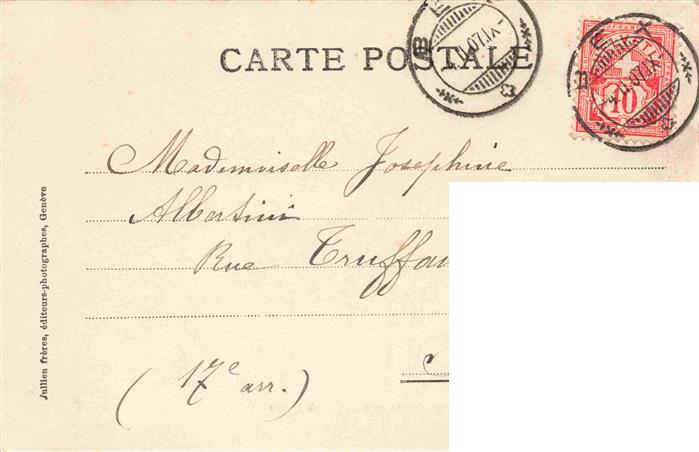 CARTE POSTALE
BEX
BEX
10
Mademoiselle Josephine
Albertini
Rue
(17e arr.)
Jullien frères, éditeurs-photographes, Genève